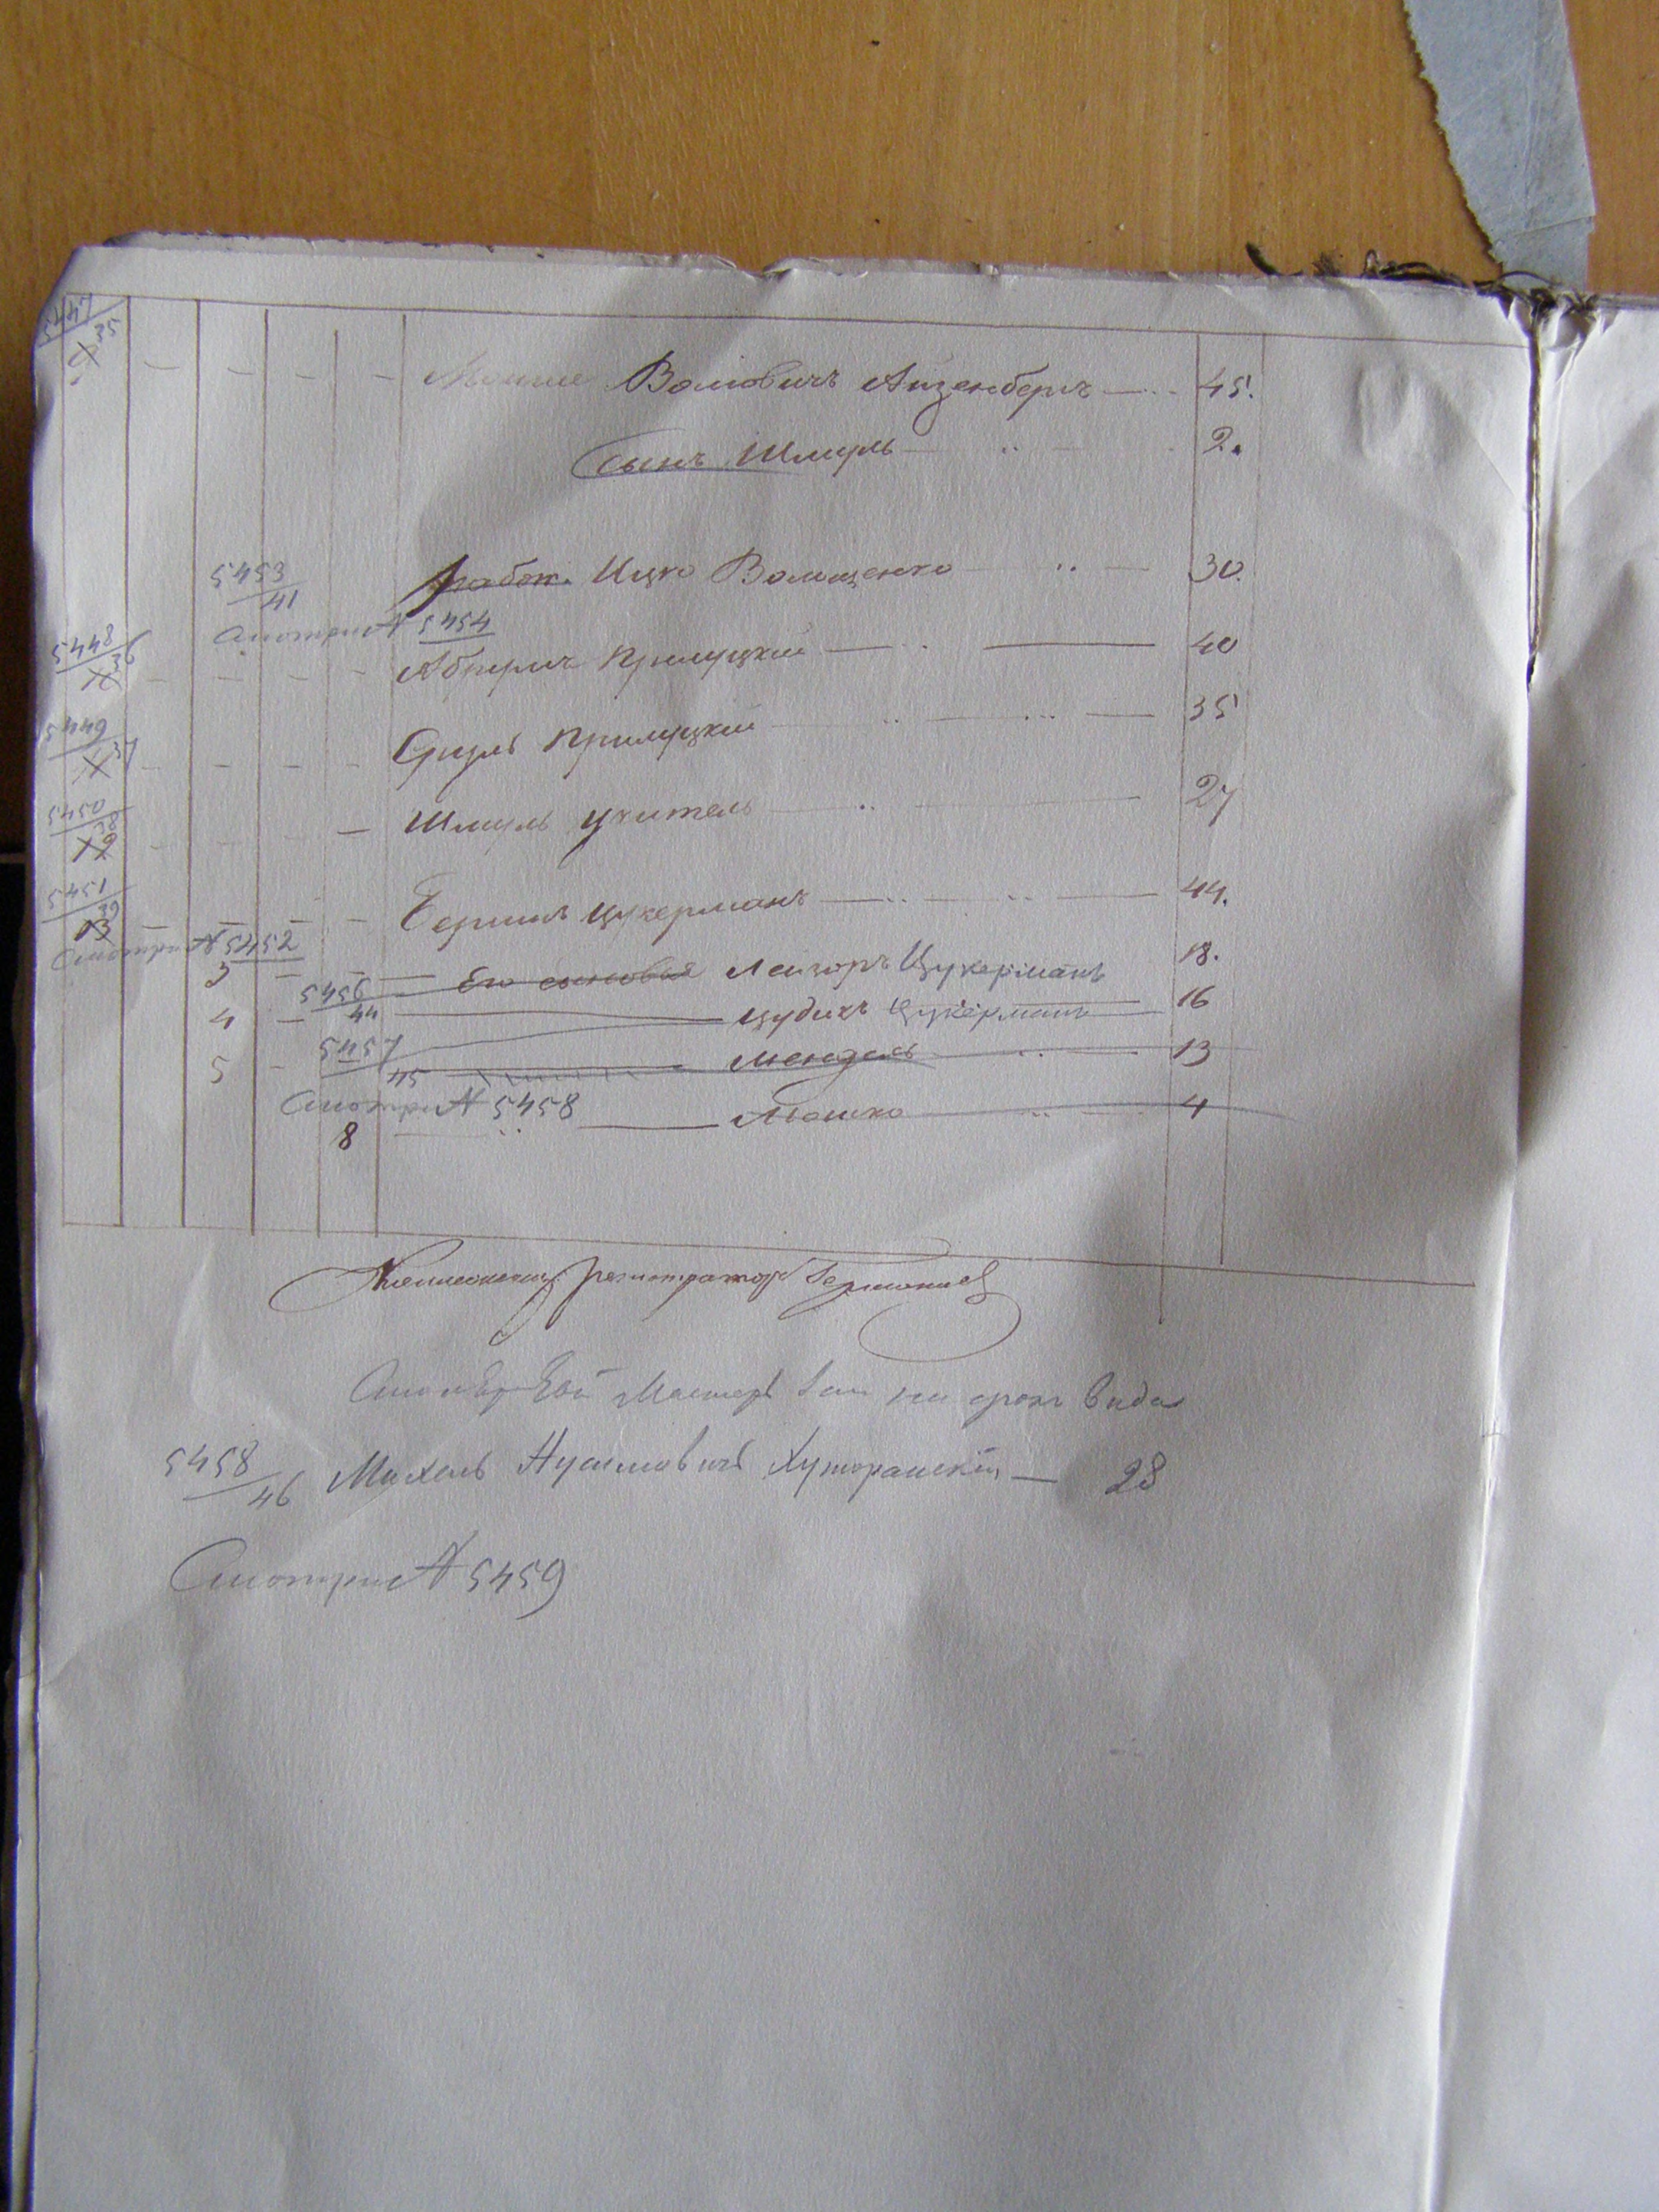 5447
35
Мошке Волковичъ Айзенбергъ 45.
Сынъ Шмуль 2.
5453
41
работ. Ицко Волощенко 30.
Смотри № 5454
5448
36
Абрумъ Прилуцкій 40
5449
37
Срузль Прилуцкій 35
5450
38
Шмуль Учитель 27
5451
39
Гершъ Цукерманъ 44.
Смотри № 5452
3 Его сыновья Лейзоръ Цукерманъ 18.
5456
44
4 Цудикъ Цукерманъ 16
5457
45
5 Мендель 13
Смотри № 5458
8 Мошко 4
Коллежскій регистраторъ
Мастеръ на срокъ вида
5458
46
Михель Нусимовичъ Хуторанскій 28
Смотри № 5459